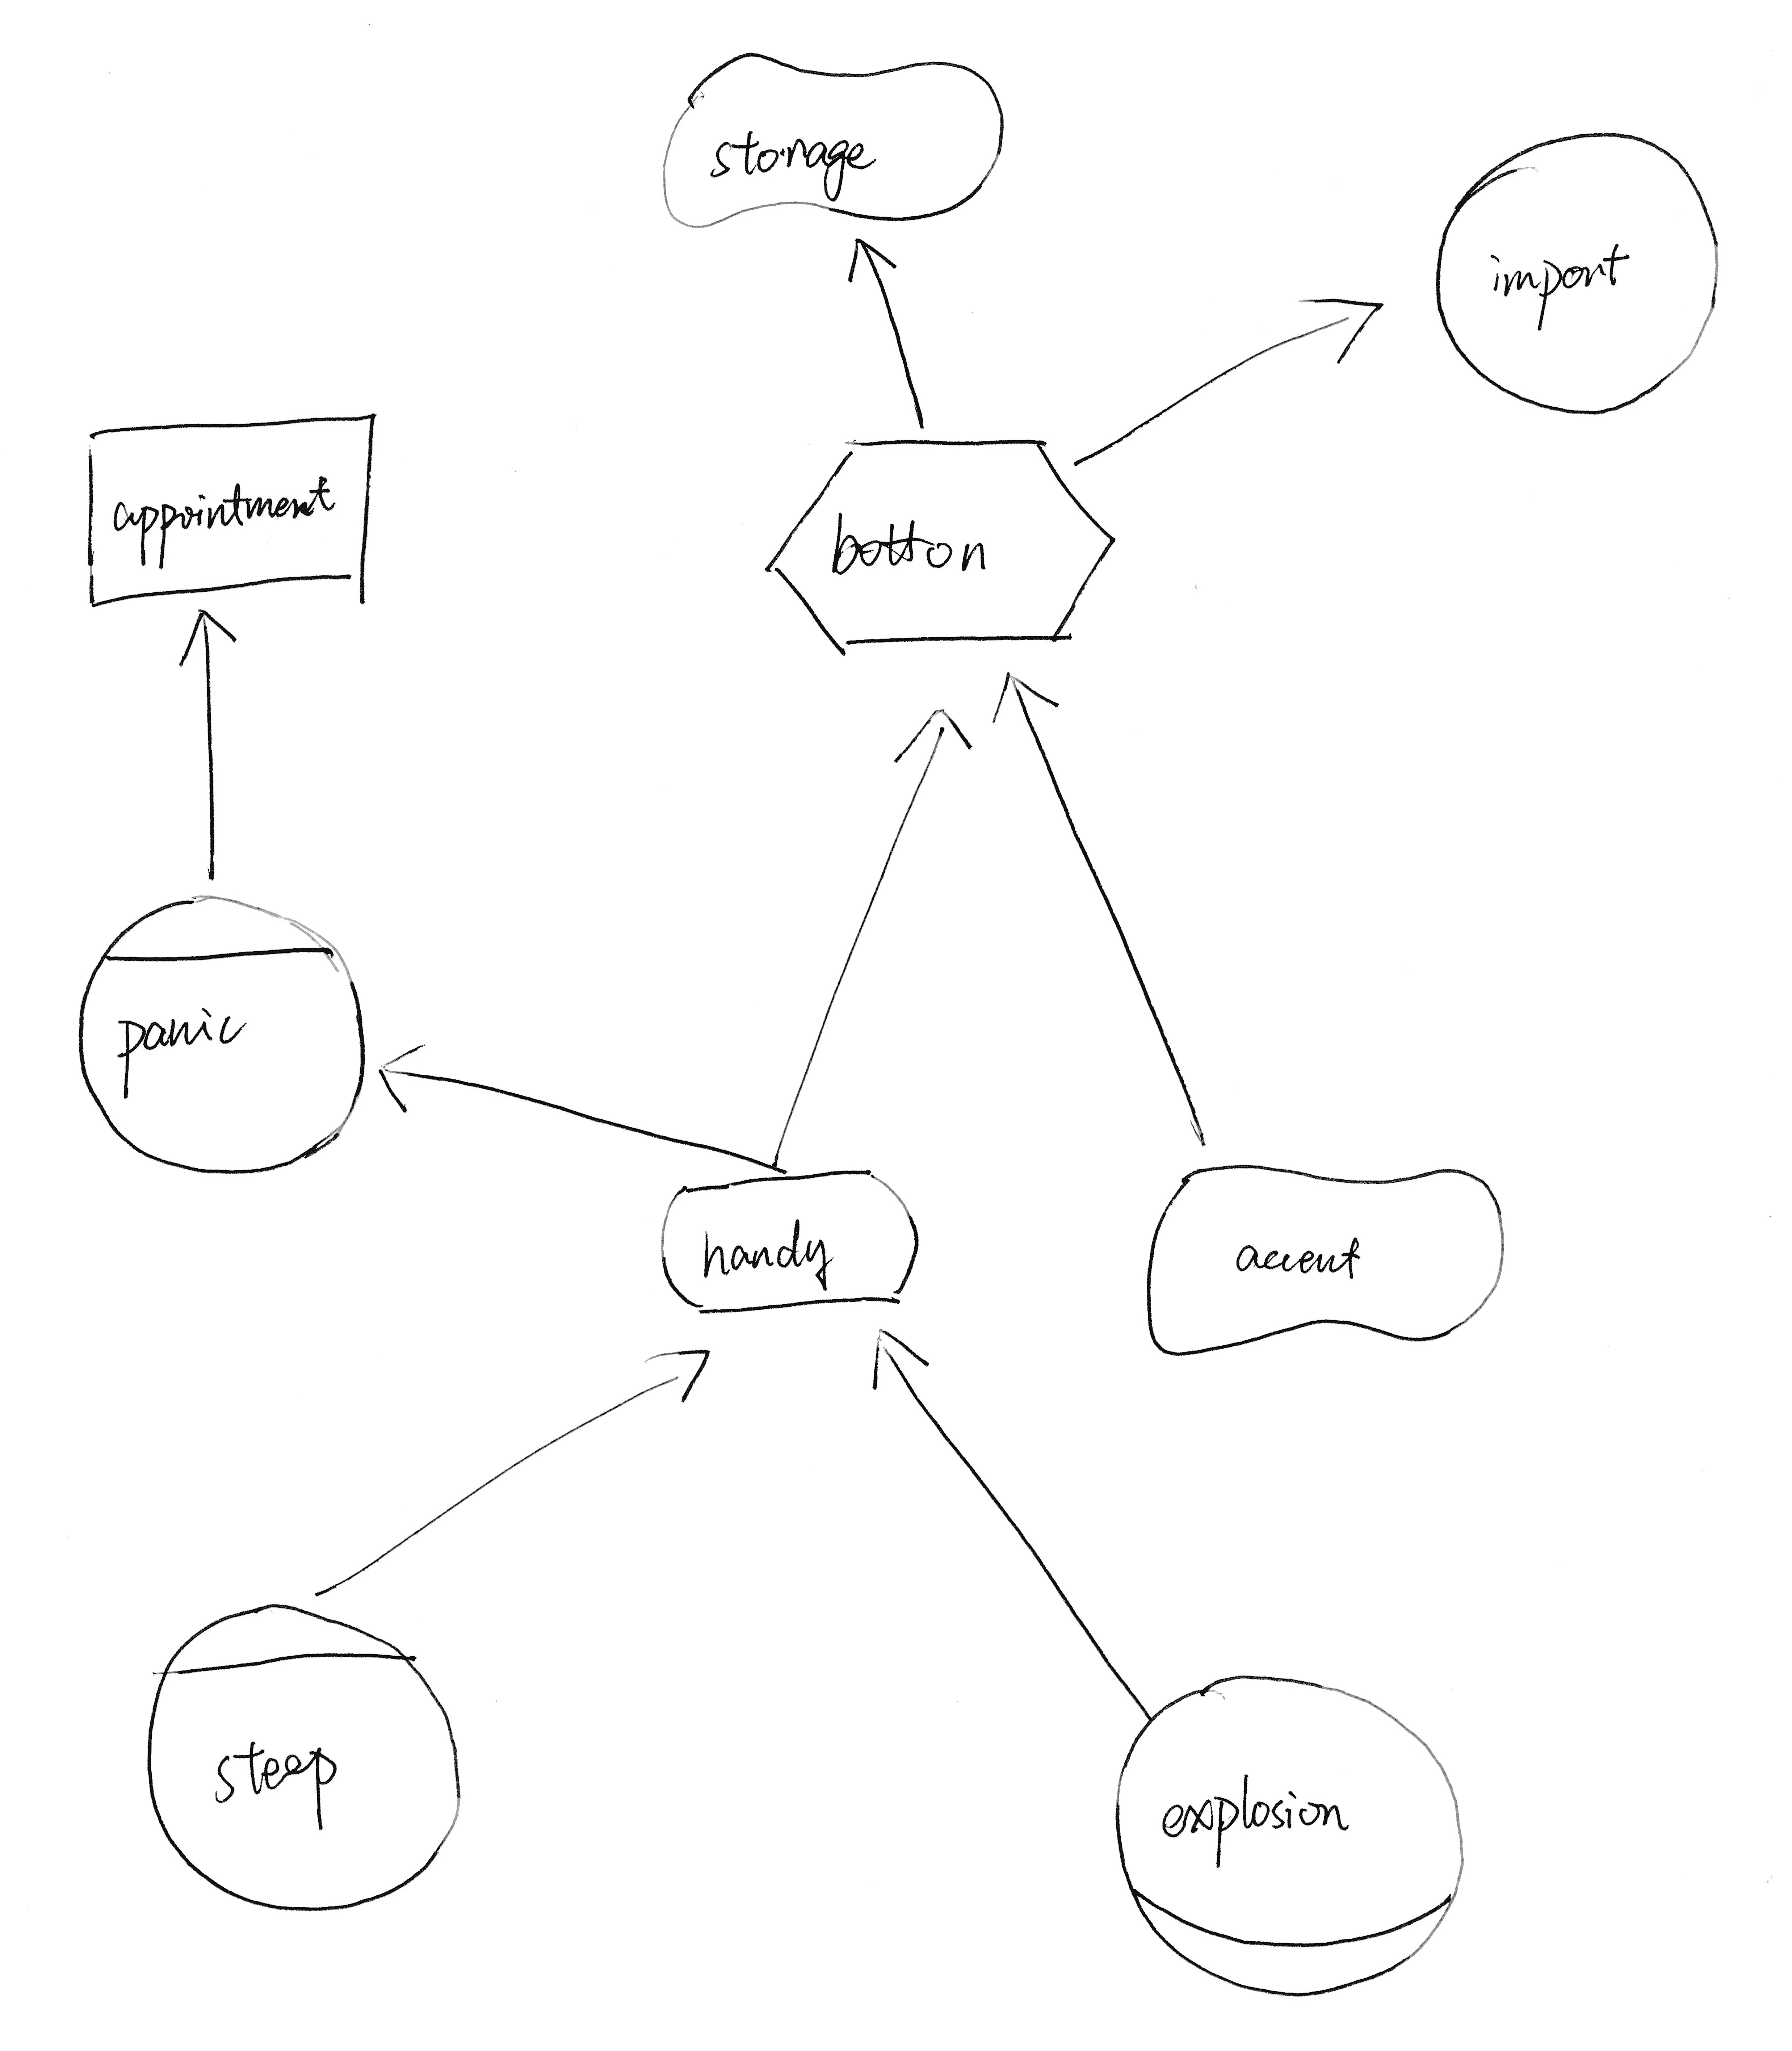 storage
import
appointment
botton
panic
handy
accent
steep
explosion